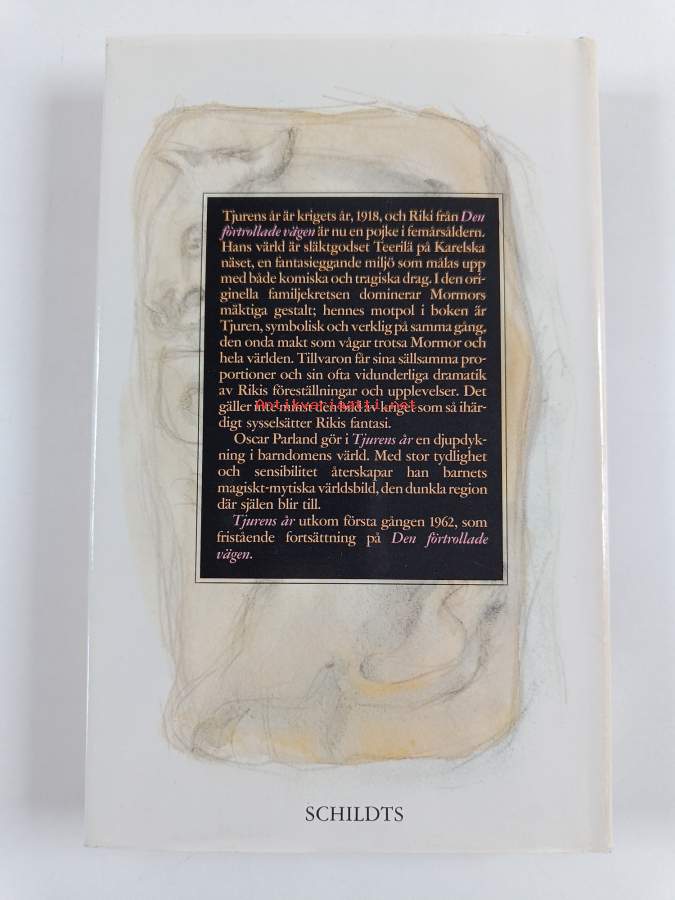 Tjurens år är krigets år, 1918, och Riki från Den
förtrollade vägen är nu en pojke i femårsåldern.
Hans värld är släktgodset Teerilä på Karelska
näset, en fantasieggande miljö som målas upp
med både komiska och tragiska drag. I den ori-
ginella familjekretsen dominerar Mormors
mäktiga gestalt; hennes motpol i boken är
Tjuren, symbolisk och verklig på samma gång,
den onda makt som vågar trotsa Mormor och
hela världen. Tillvaron får sina sällsamma pro-
portioner och sin ofta vidunderliga dramatik
av Rikis föreställningar och upplevelser. Det
gäller inte minst den bild av kriget som så ihär-
Antikvariaatti.net
digt sysselsätter Rikis fantasi.
Oscar Parland gör i Tjurens år en djupdyk-
ning i barndomens värld. Med stor tydlighet
och sensibilitet återskapar han barnets
magiskt-mytiska världsbild, den dunkla region
där själen blir till.
Tjurens år utkom första gången 1962, som
fristående fortsättning på Den förtrollade
vägen.
SCHILDTS